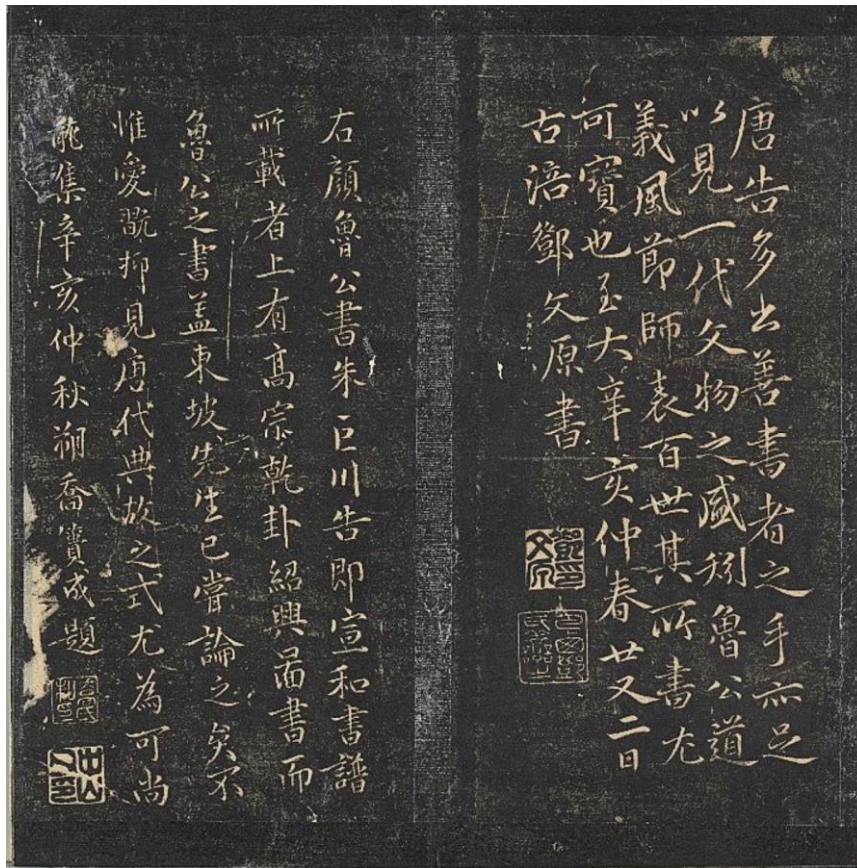 唐告多出善書者之手亦足
以見一代文物之盛矧魯公道
義風節師表百世其所書尤
可寶也至大辛亥仲春廿又二日
古涪鄧文原書
右顏魯公書朱巨川告即宣和書譜
所載者上有高宗乾卦紹興啚書而
魯公之書盖東坡先生已嘗論之矣不
惟愛翫抑見唐代典故之式尤為可尚
龍集辛亥仲秋朔喬簣成題